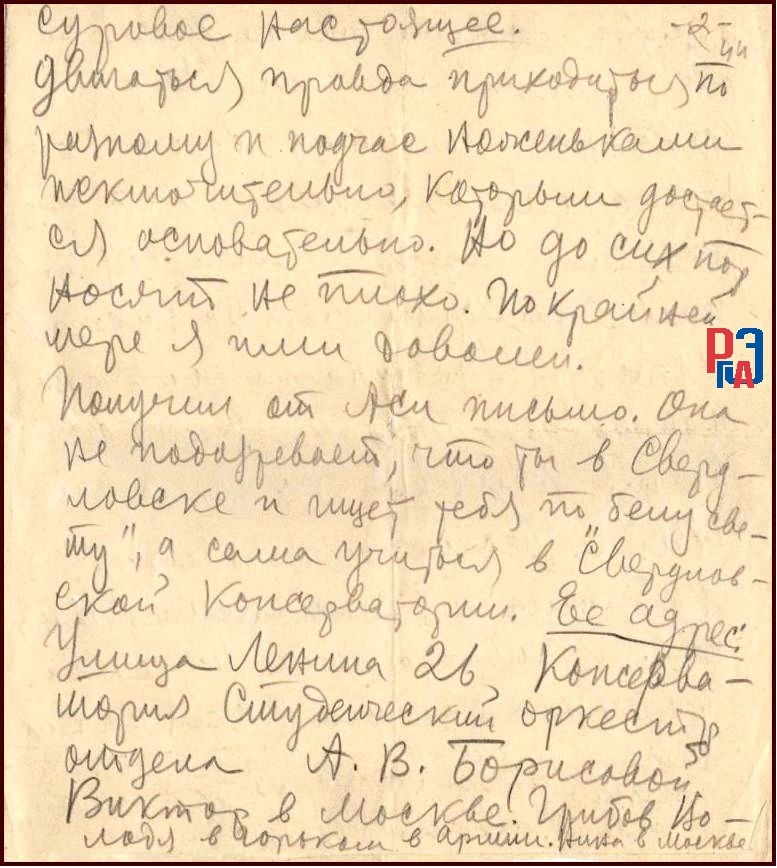 суровое настоящее. -2-
двигаться правда приходиться по
разному и подчас ноженьками
исключительно, которым достает-
ся основательно. Но до сих пор
носят не плохо. По крайней
мере я ими доволен.
Получил от Аси письмо. Она
не подозревает, что ты в Сверд-
ловске и ищет тебя по белу све-
ту", а сама учиться в "Свердлов-
ской Консерватории. Ее адрес:
Улица Ленина 26 Консерва-
тория Студенческий оркестр
отдела А. В. Борисовой
Виктор в Москве. Грибов Во-
лодя в Горьком в армии. Нина в Москве
РГАЭ